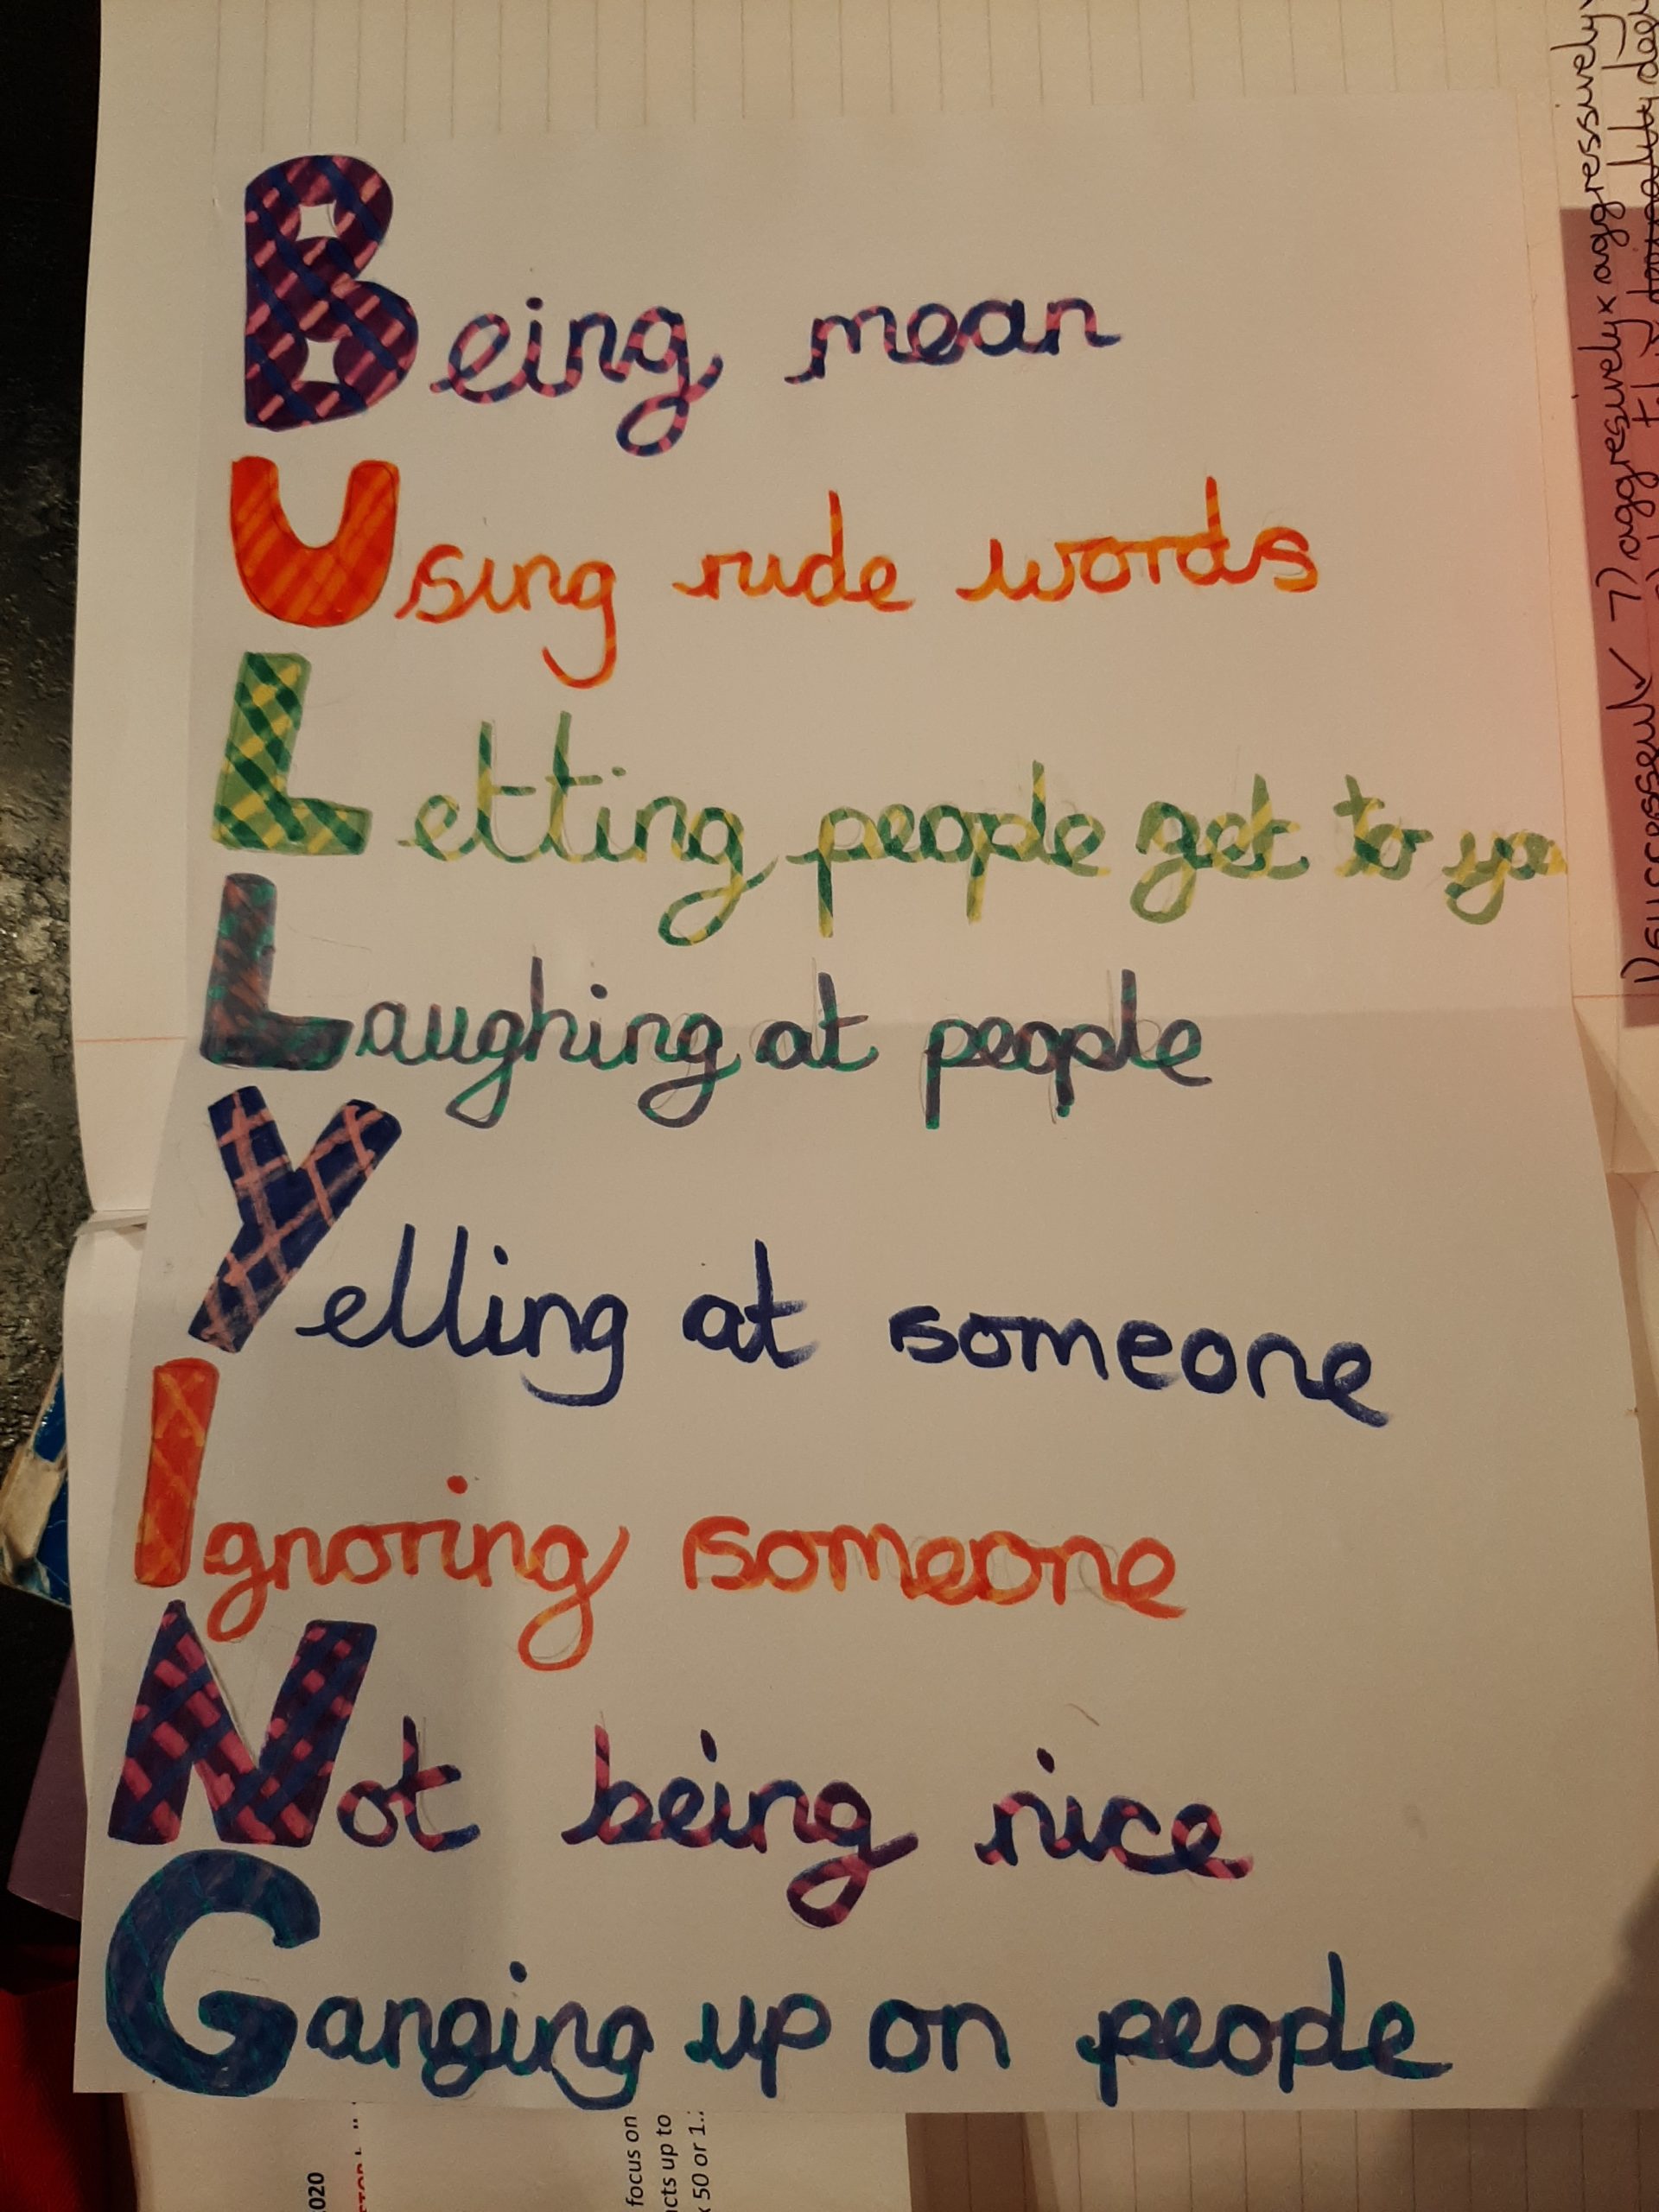 Being mean
Using rude words
Letting people get to yo
Laughing at people
Yelling at someone
Ignoring someone
Not being nice
Ganging up on people
7) aggresively x aggressively
020
focus on
cts up to
50 or 1